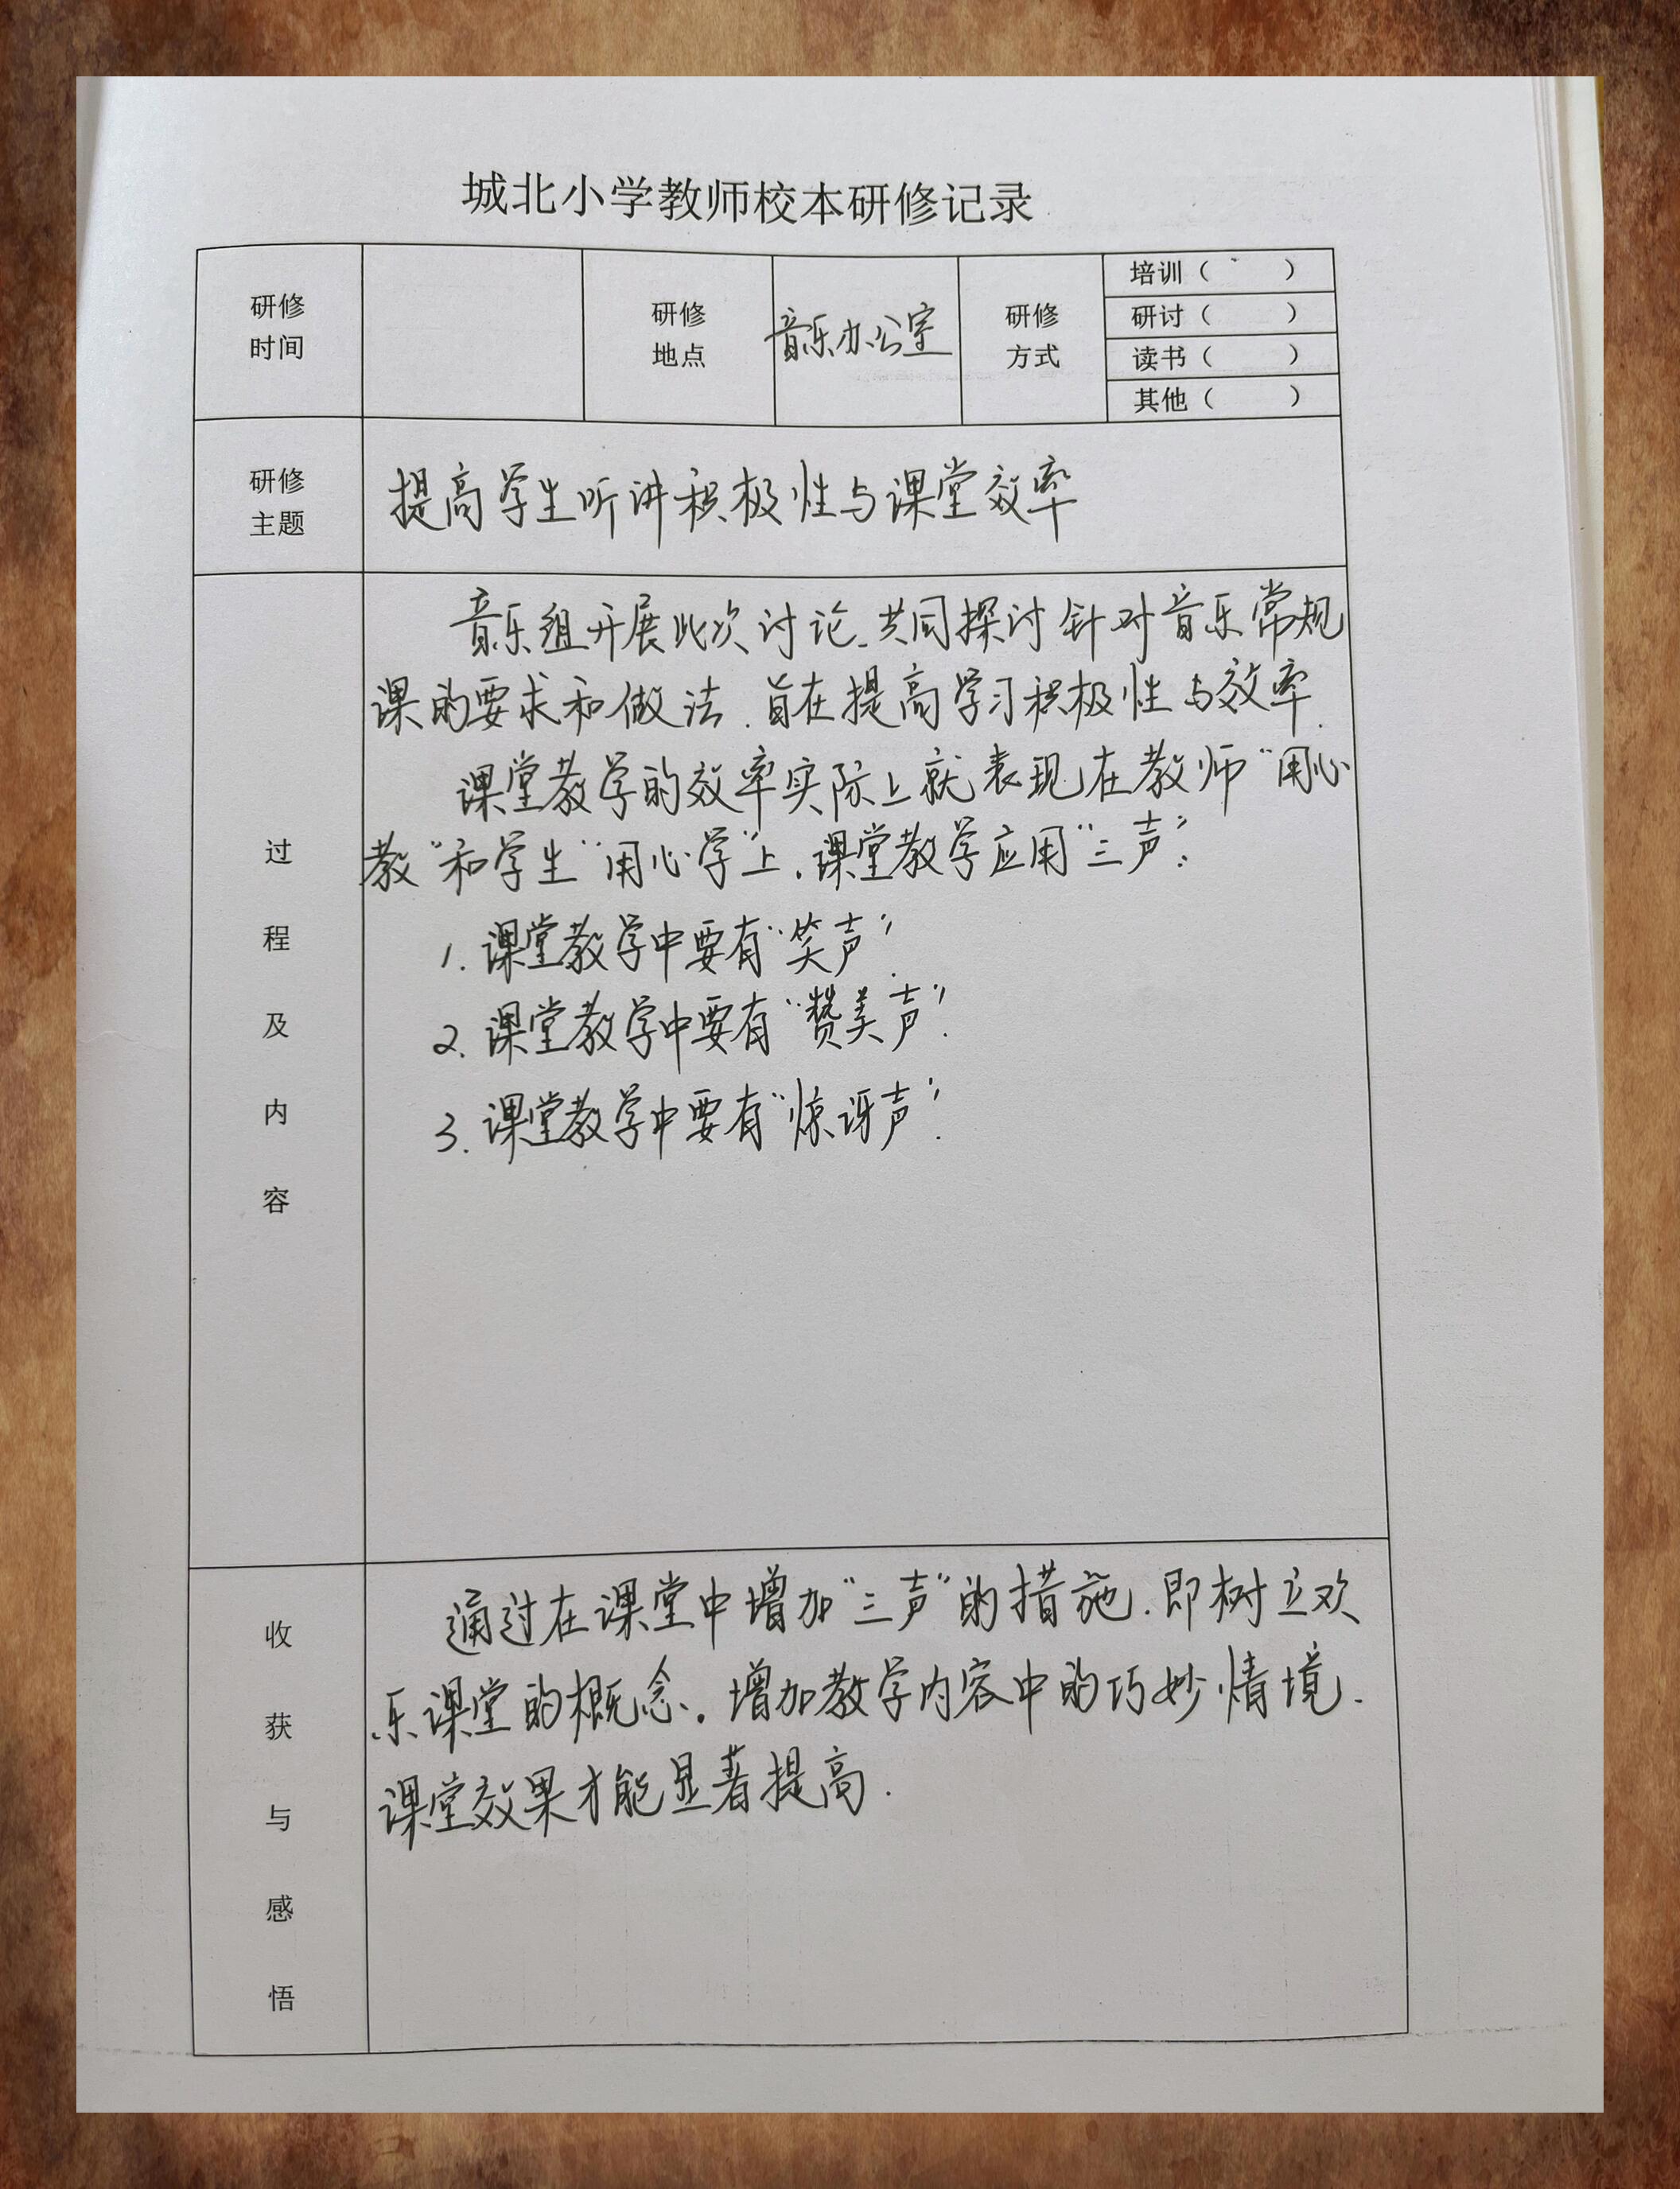 城北小学教师校本研修记录
研修时间
研修地点
音乐办公室
研修方式
培训（ ）
研讨（ ）
读书（ ）
其他（ ）
研修主题
提高学生听讲积极性与课堂效率
过程及内容
音乐组开展此次讨论.共同探讨针对音乐常规
课的要求和做法.旨在提高学习积极性与效率.
课堂教学的效率实际上就表现在教师“用心
教”和学生“用心学”上.课堂教学应用“三声”:
1.课堂教学中要有“笑声”.
2.课堂教学中要有“赞美声”.
3.课堂教学中要有“惊讶声”.
收获与感悟
通过在课堂中增加“三声”的措施.即树立欢
乐课堂的概念.增加教学内容中的巧妙情境.
课堂效果才能显著提高.